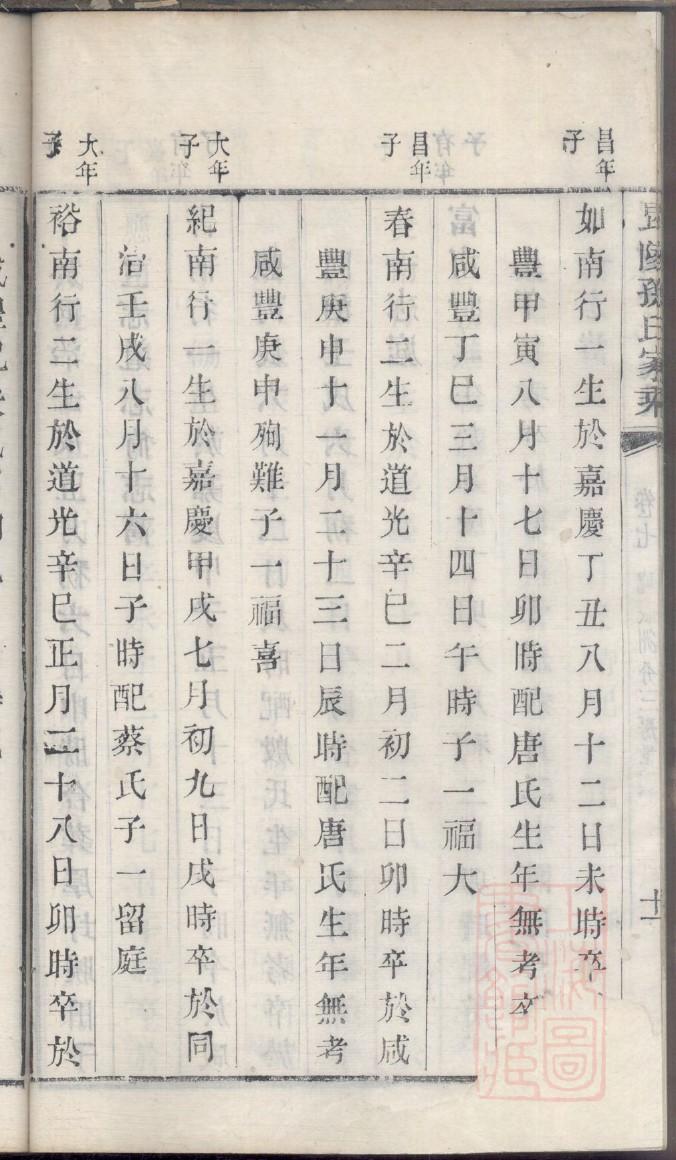 孫氏家乘
卷七
十
昌年子
如南行一生於嘉慶丁丑八月十二日未時卒
豐甲寅八月十七日卯時配唐氏生年無考卒
咸豐丁巳三月十四日午時子一福大
昌年子
春南行二生於道光辛巳二月初二日卯時卒於咸
豐庚申十一月二十三日辰時配唐氏生年無考
咸豐庚申殉難子一福喜
大年子
紀南行一生於嘉慶甲戌七月初九日戌時卒於同
治壬戌八月十六日子時配蔡氏子一留庭
大年子
裕南行二生於道光辛巳正月二十八日卯時卒於